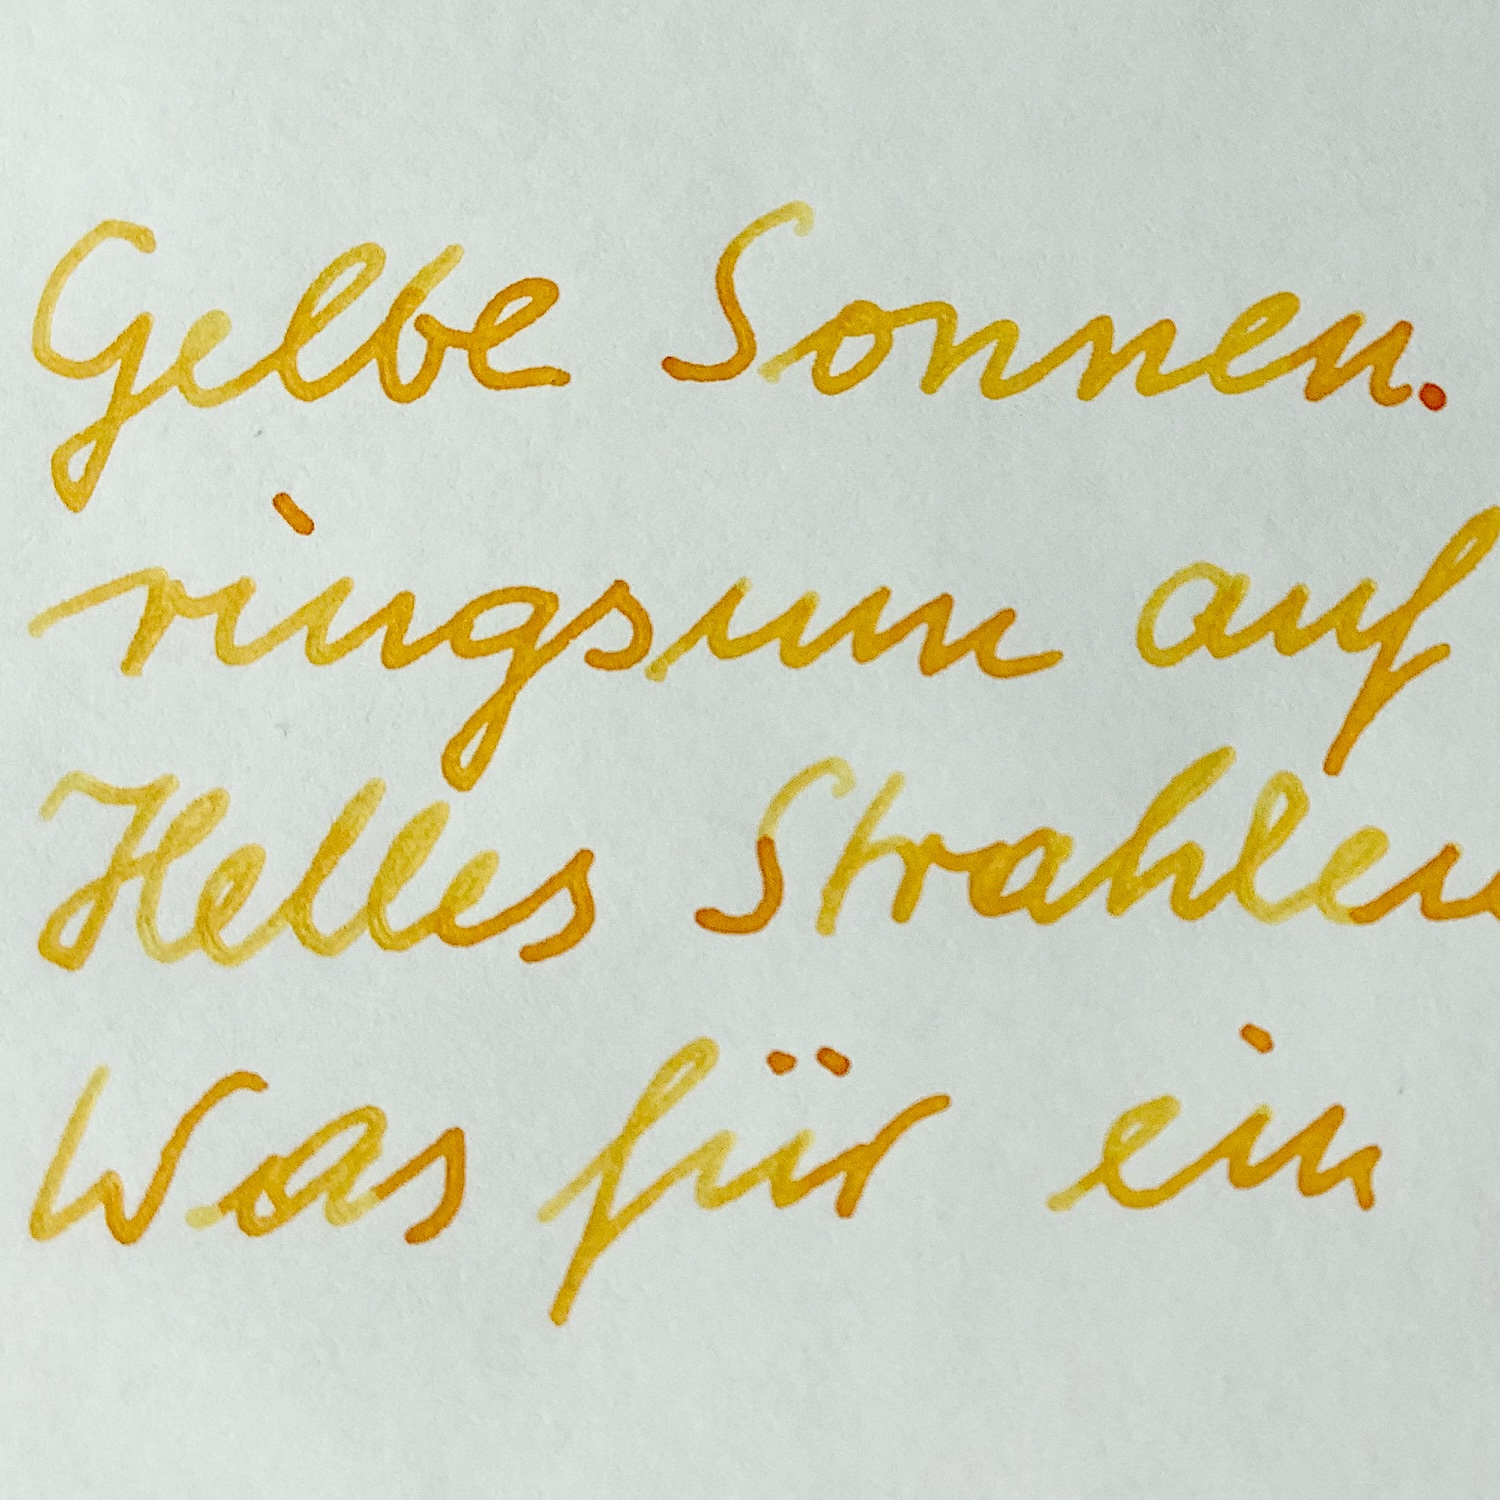 Gelbe Sonnen.
ringsum auf
Helles Strahlen
Was für ein